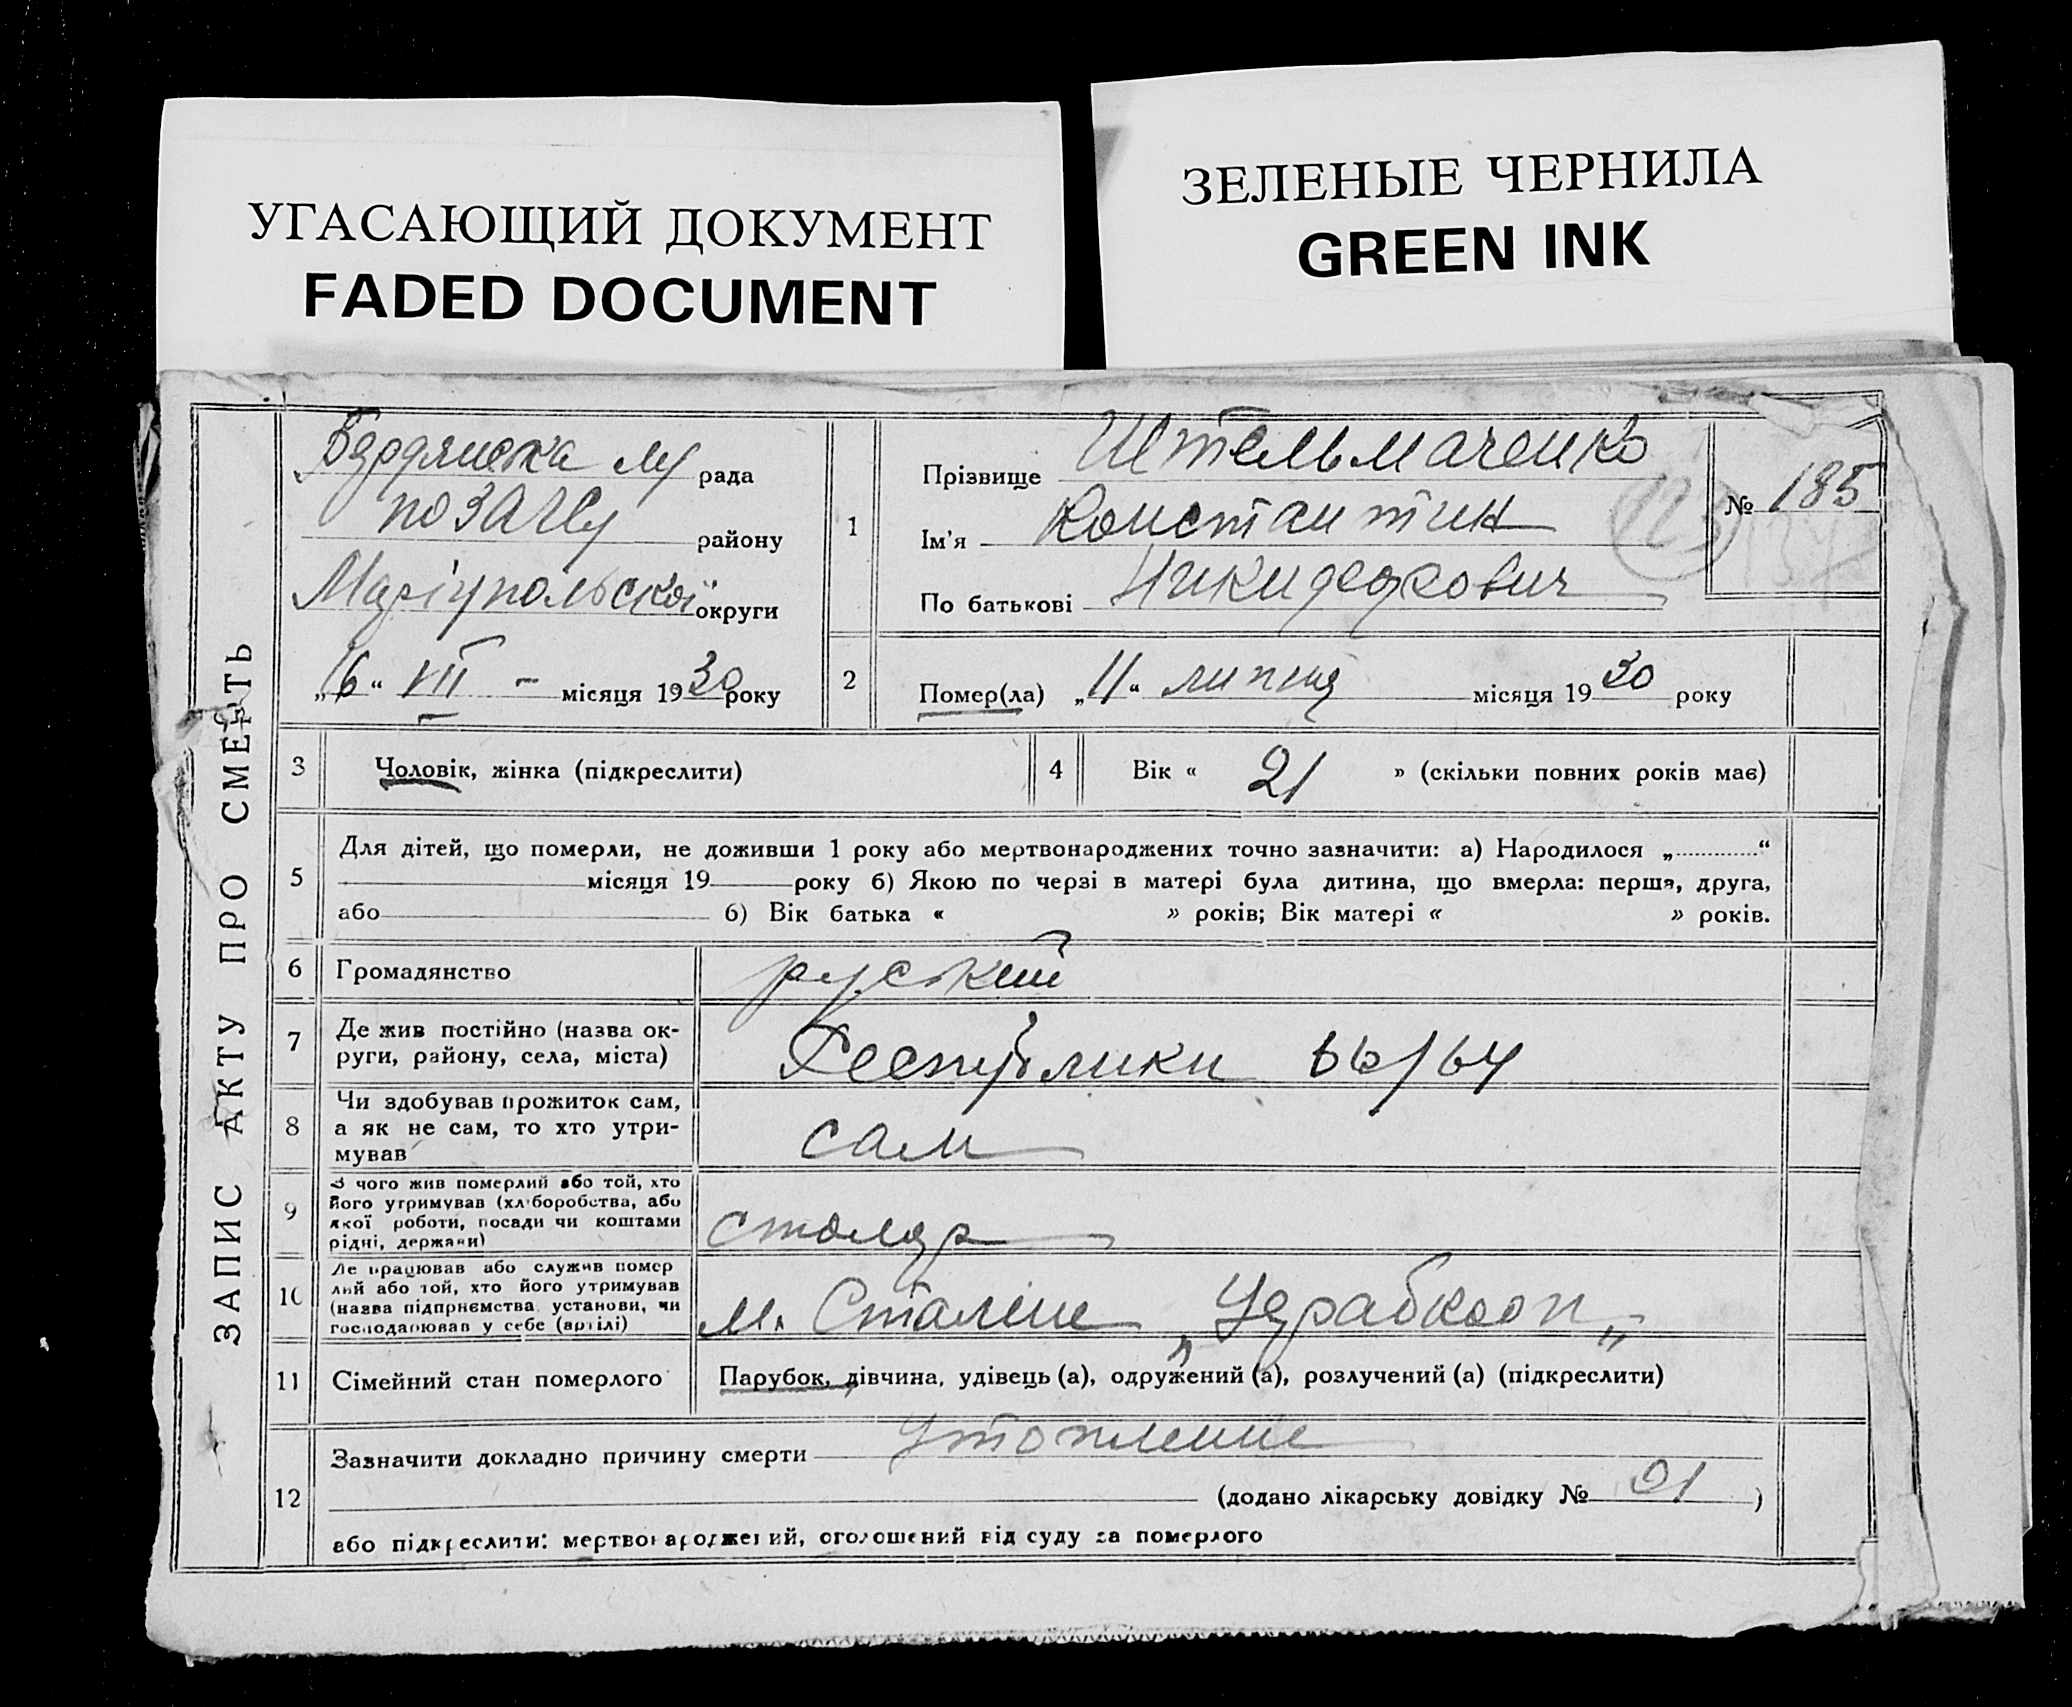 УГАСАЮЩИЙ ДОКУМЕНТ
FADED DOCUMENT
ЗЕЛЕНЫЕ ЧЕРНИЛА
GREEN INK
ЗАПИС АКТУ ПРО СМЕРТЬ
Бердянська му рада
по ЗАГСу району
Маріупольскої округи
„16“ VII – місяця 1930 року
1
Прізвище Штельмаченко
Ім'я Константин
По батькові Никифорович
№ 185
123
2
Помер(ла) „11“ липня місяця 1930 року
3 Чоловік, жінка (підкреслити)
4 Вік « 21 » (скільки повних років має)
5
Для дітей, що померли, не доживши 1 року або мертвонароджених точно зазначити: а) Народилося „ “
місяця 19 року б) Якою по черзі в матері була дитина, що вмерла: перша, друга,
або б) Вік батька « » років; Вік матері « » років.
6 Громадянство руський
7 Де жив постійно (назва ок-
руги, району, села, міста)
Республики 66/64
8 Чи здобував прожиток сам,
а як не сам, то хто утри-
мував
сам
9 З чого жив померлий або той, хто
його утримував (хліборобства, або
якої роботи, посади чи коштами
рідні, держави)
столяр
10 Де працював або служив помер
лий або той, хто його утримував
(назва підприємства, установи, чи
господарював у себе (артілі)
м. Сталіне „Церабкооп„
11 Сімейний стан померлого Парубок, дівчина, удівець (а), одружений (а), розлучений (а) (підкреслити)
12
Зазначити докладно причину смерти Утопление
(додано лікарську довідку № 91 )
або підкреслити: мертвонароджений, оголошений від суду за померлого